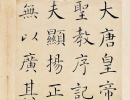 大唐皇帝
聖教序記
夫顯揚正
無以廣其